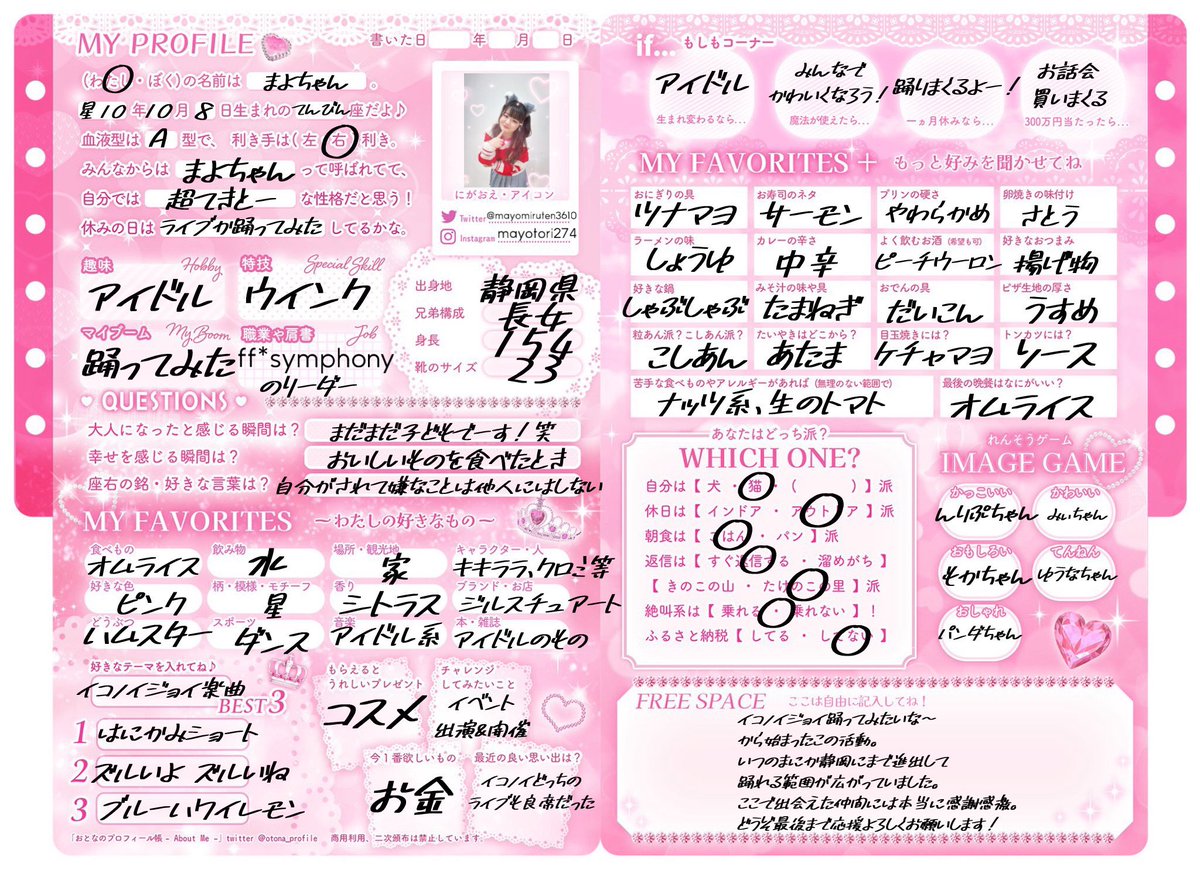 MY PROFILE
書いた日 年 月 日
(わたし・ぼく)の名前は まよちゃん 。
星10年10月8日生まれのてんびん座だよ♪
血液型は A 型で、 利き手は(左・右)利き。
みんなからは まよちゃん って呼ばれてて、
自分では 超てきとー な性格だと思う!
休みの日は ライブか踊ってみた してるかな。
にがおえ・アイコン
Twitter @mayomiruten3610
Instagram mayotori274
趣味 Hobby
アイドル
特技 Special Skill
ウインク
マイブーム My Boom
踊ってみた
職業や肩書 Job
ff*symphony
のリーダー
出身地 静岡県
兄弟構成 長女
身長 154
靴のサイズ 23
QUESTIONS
大人になったと感じる瞬間は? まだまだ子どもでーす!笑
幸せを感じる瞬間は? おいしいものを食べたとき
座右の銘・好きな言葉は? 自分がされて嫌なことは他人にはしない
MY FAVORITES ~わたしの好きなもの~
食べもの オムライス
飲み物 水
場所・観光地 家
キャラクター・人 キキララ、クロミ等
好きな色 ピンク
柄・模様・モチーフ 星
香り シトラス
ブランド・お店 ジルスチュアート
どうぶつ ハムスター
スポーツ ダンス
音楽 アイドル系
本・雑誌 アイドルのもの
好きなテーマを入れてね♪
イコノイジョイ楽曲
BEST3
1 はにかみショート
2 ズルいよ ズルいね
3 ブルーハワイレモン
もらえると
うれしいプレゼント
コスメ
チャレンジ
してみたいこと
イベント
出演&開催
今1番欲しいもの
お金
最近の良い思い出は?
イコノイどっちの
ライブも良席だった
「おとなのプロフィール帳 - About Me -」twitter @otona_profile 商用利用、二次頒布は禁止しています
if... もしもコーナー
アイドル
生まれ変わるなら...
みんなで
かわいくなろう!
魔法が使えたら...
踊りまくるよー!
一ヵ月休みなら...
お話会
買いまくる
300万円当たったら...
MY FAVORITES + もっと好みを聞かせてね
おにぎりの具 ツナマヨ
お寿司のネタ サーモン
プリンの硬さ やわらかめ
卵焼きの味付け さとう
ラーメンの味 しょうゆ
カレーの辛さ 中辛
よく飲むお酒 (希望も可) ピーチウーロン
好きなおつまみ 揚げ物
好きな鍋 しゃぶしゃぶ
みそ汁の味や具 たまねぎ
おでんの具 だいこん
ピザ生地の厚さ うすめ
粒あん派?こしあん派? こしあん
たいやきはどこから? あたま
目玉焼きには? ケチャマヨ
トンカツには? ソース
苦手な食べものやアレルギーがあれば (無理のない範囲で)
ナッツ系、生のトマト
最後の晩餐はなにがいい?
オムライス
あなたはどっち派?
WHICH ONE?
自分は【 犬 ・ 猫 ・ ( ) 】派
休日は【 インドア ・ アウトドア 】派
朝食は【 ごはん ・ パン 】派
返信は【 すぐ返信する ・ 溜めがち 】
【 きのこの山 ・ たけのこの里 】派
絶叫系は【 乗れる ・ 乗れない 】!
ふるさと納税【 してる ・ してない 】
れんそうゲーム
IMAGE GAME
かっこいい んりぷちゃん
かわいい みぃちゃん
おもしろい そかちゃん
てんねん ゆうなちゃん
おしゃれ パンダちゃん
FREE SPACE ここは自由に記入してね!
イコノイジョイ踊ってみたいな〜
から始まったこの活動。
いつのまにか静岡にまで進出して
踊れる範囲が広がっていました。
ここで出会えた仲間には本当に感謝感激。
どうぞ最後まで応援よろしくお願いします!